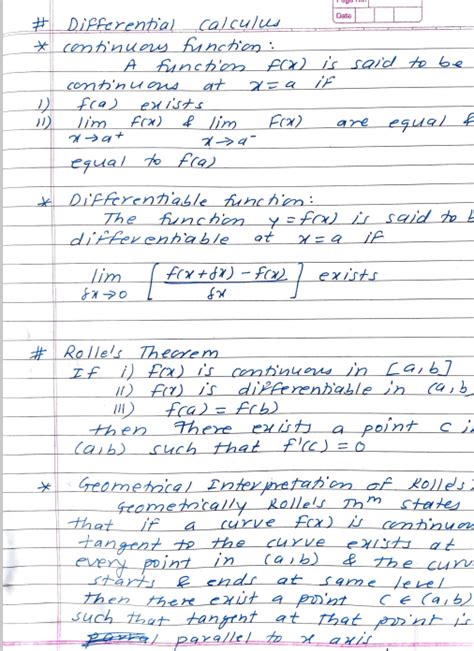 Date
# Differential calculus
* continuous function :
A function f(x) is said to be
continuous at x=a if
i) f(a) exists
ii) lim f(x) & lim f(x) are equal &
x→a⁺ x→a⁻
equal to f(a)
* Differentiable function:
The function y=f(x) is said to b
differentiable at x=a if
lim [ f(x+δx) - f(x) ] exists
δx→0 δx
# Rolle's Theorem
If i) f(x) is continuous in [a,b]
ii) f(x) is differentiable in (a,b
iii) f(a) = f(b)
then There exists a point c i
(a,b) such that f'(c) = 0
* Geometrical Interpretation of Rolle's:
Geometrically Rolle's Thm states
that if a curve f(x) is continuou
tangent to the curve exists at
every point in (a,b) & the curv
starts & ends at same level
then there exist a point c ∈ (a,b)
such that tangent at that point is
parallel to x axis